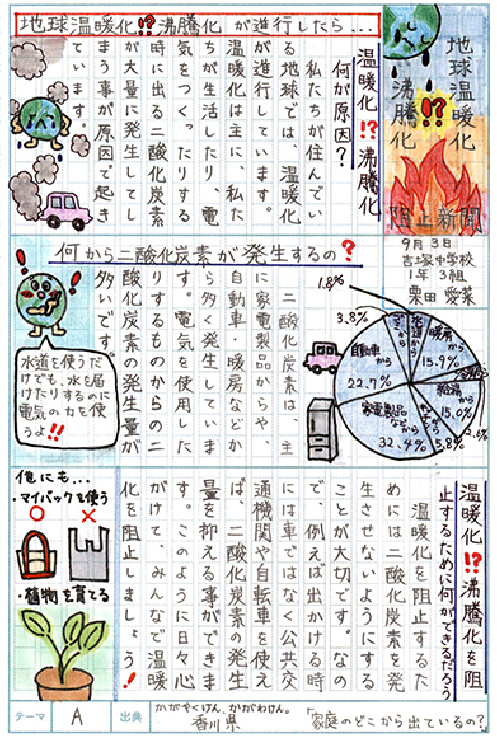 地球温暖化
!?
沸騰化
阻止新聞
9月3日
吉塚中学校
1年3組
栗田 愛菜
地球温暖化!?沸騰化が進行したら…
温暖化!?沸騰化
何が原因?
私たちが住んでい
る地球では、温暖化
が進行しています。
温暖化は主に、私た
ちが生活したり、電
気をつくったりする
時に出る二酸化炭素
が大量に発生してし
まう事が原因で起き
ています。
何から二酸化炭素が発生するの?
1.8%
3.8%
ごみから
水道から
暖房から
15.9%
給湯から
15.0%
5.8%
家電製品
などから
32.4%
自動車
から
22.7%
二酸化炭素は、主
に家電製品からや、
自動車・暖房などか
ら多く発生していま
す。電気を使用した
りするものからの二
酸化炭素の発生量が
多いです。
水道を使うだ
けでも、水を届
けたりするのに
電気の力を使
うよ!!
温暖化!?沸騰化を阻
止するために何ができるだろう
温暖化を阻止するた
めには二酸化炭素を発
生させないようにする
ことが大切です。なの
で、例えば出かける時
には車ではなく公共交
通機関や自転車を使え
ば、二酸化炭素の発生
量を抑える事ができま
す。このように日々心
がけて、みんなで温暖
化を阻止しましょう!
他にも…
・マイバックを使う
○ ×
・植物を育てる
テーマ
A
出典
かがやくけん、かがわけん。
香川県
「家庭のどこから出ているの?